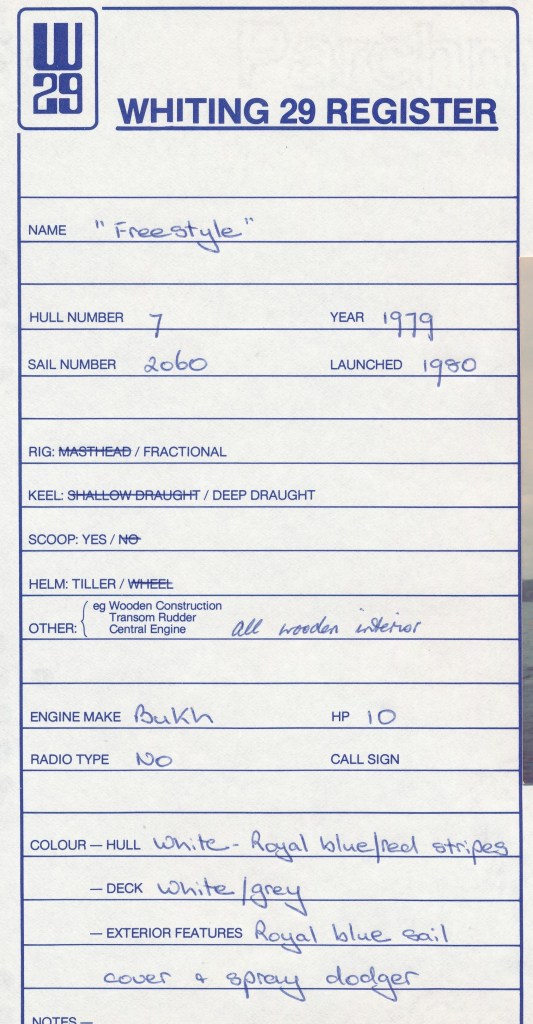 W
29
WHITING 29 REGISTER
NAME "Freestyle"
HULL NUMBER 7 YEAR 1979
SAIL NUMBER 2060 LAUNCHED 1980
RIG: MASTHEAD / FRACTIONAL
KEEL: SHALLOW DRAUGHT / DEEP DRAUGHT
SCOOP: YES / NO
HELM: TILLER / WHEEL
eg Wooden Construction
Transom Rudder
OTHER: { Central Engine all wooden interior
ENGINE MAKE Bukh HP 10
RADIO TYPE NO CALL SIGN
COLOUR — HULL White - Royal blue/red stripes
— DECK White/grey
— EXTERIOR FEATURES Royal blue sail
cover & spray dodger
NOTES —